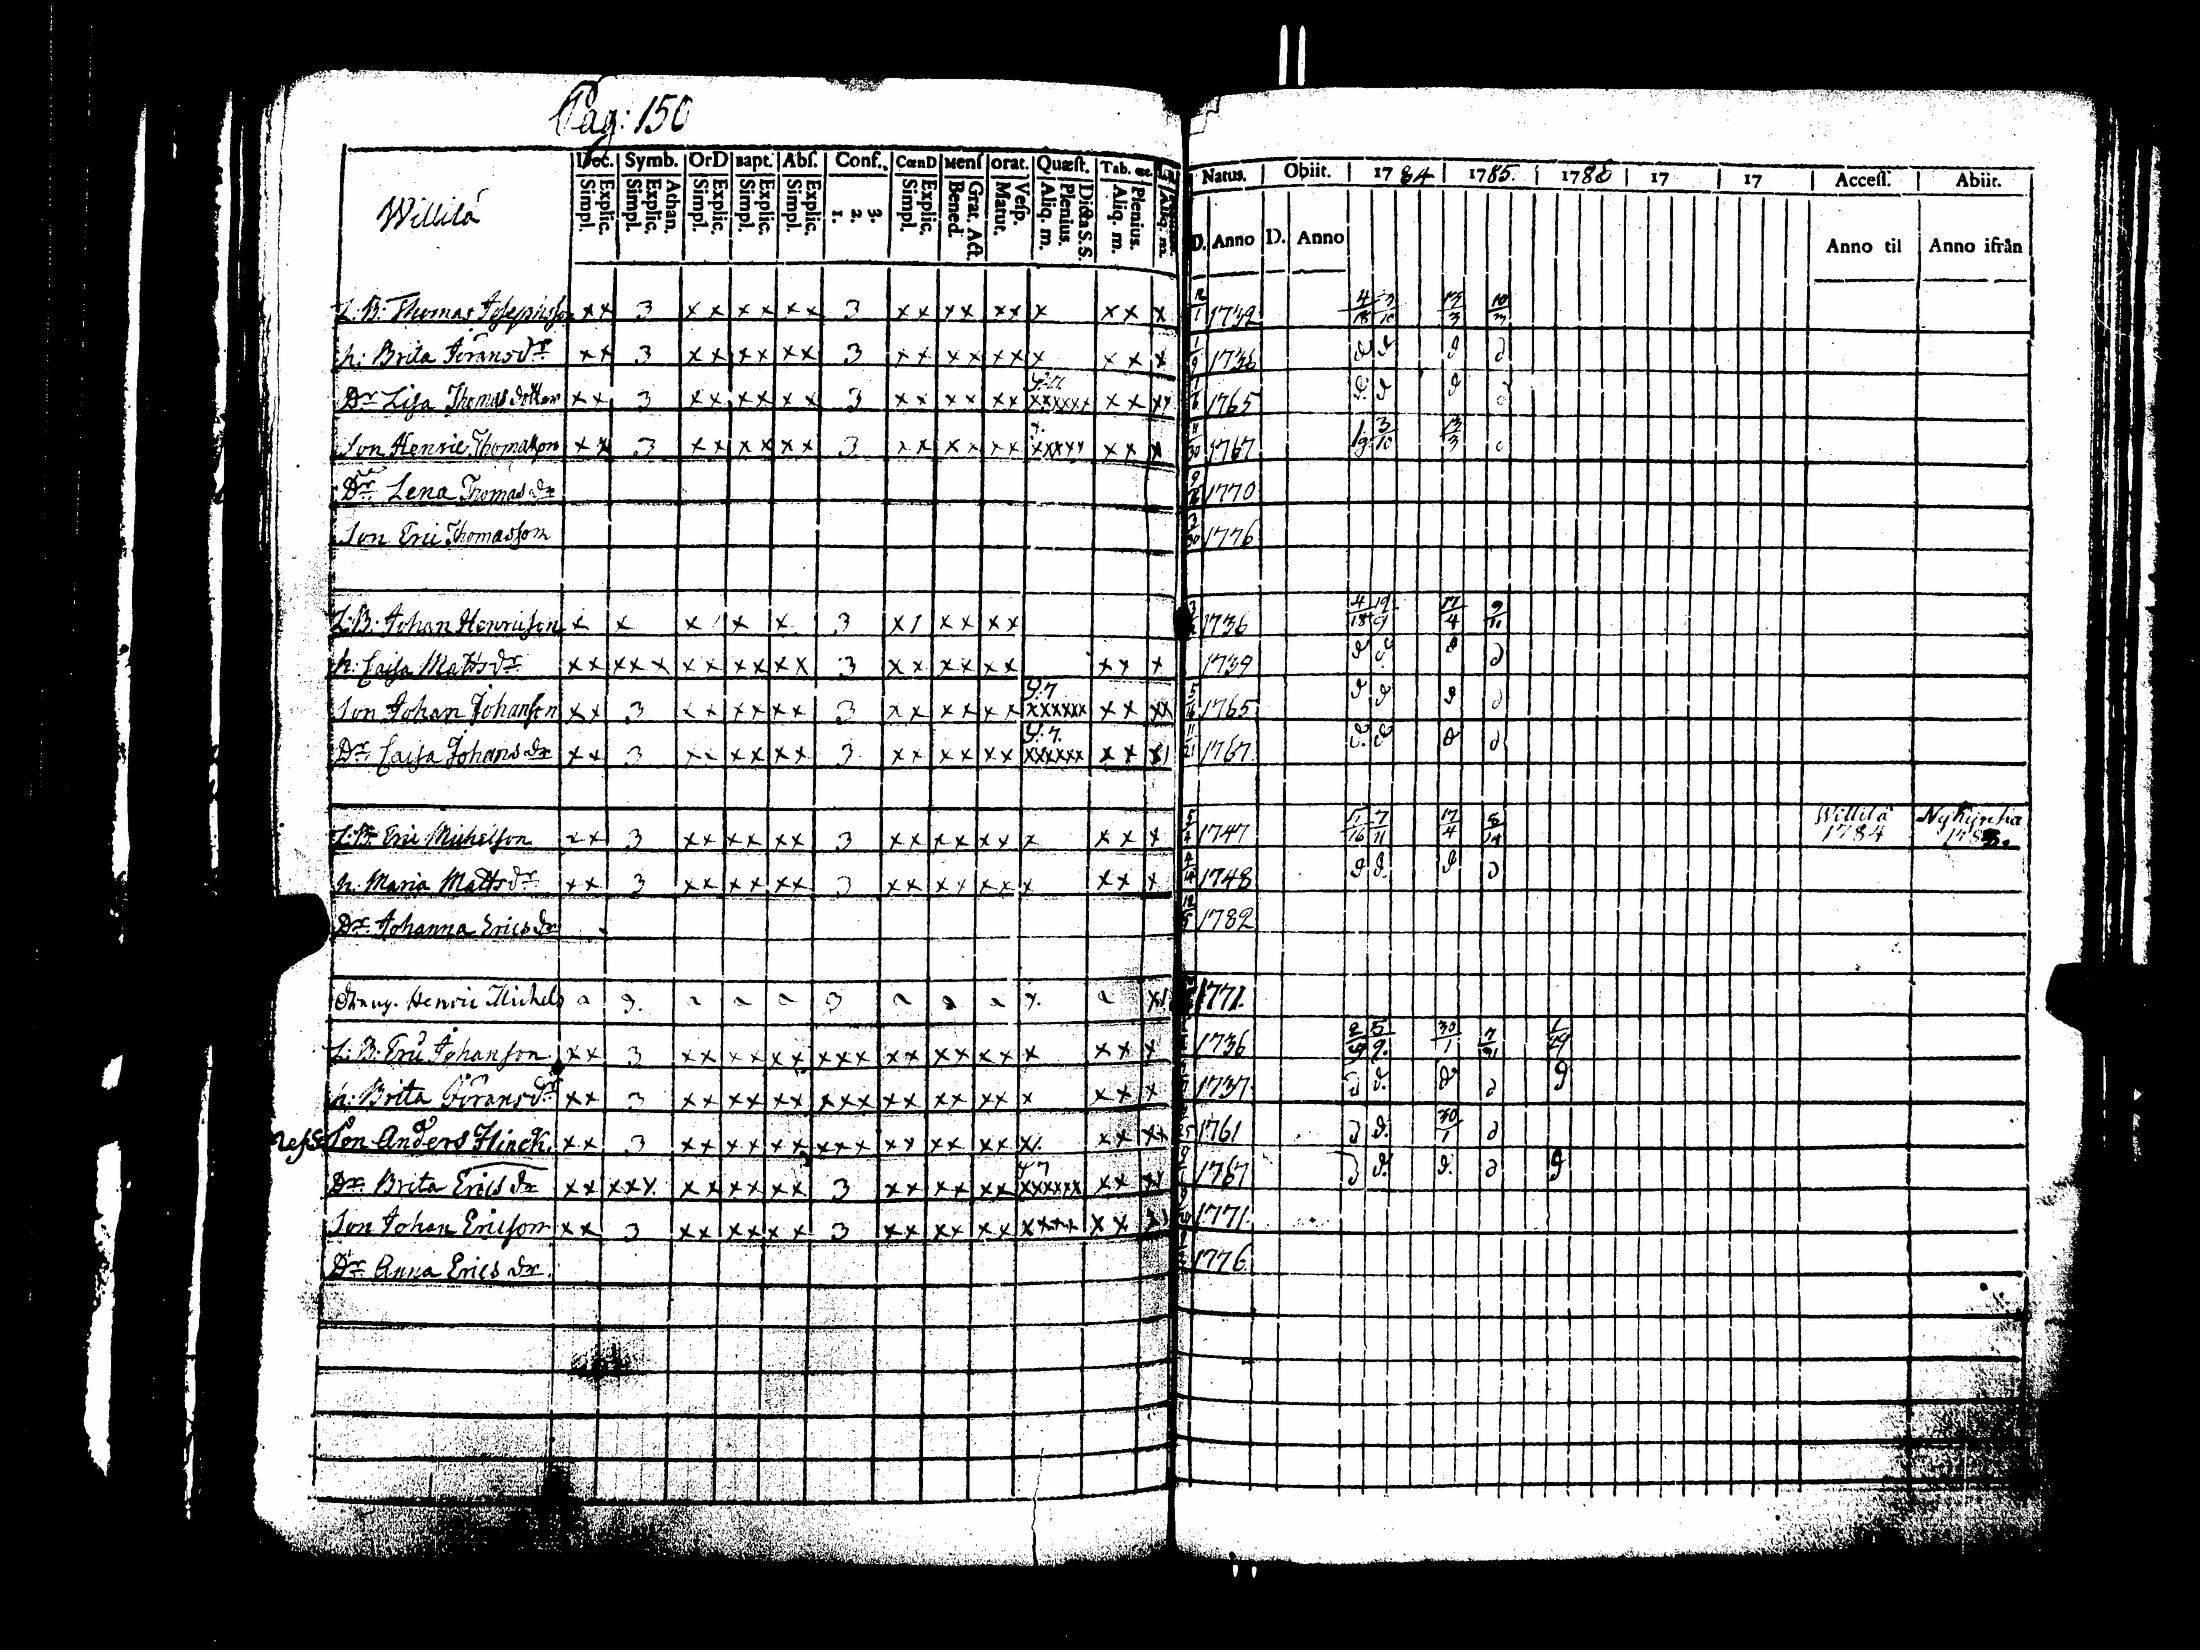 Pag: 150
Willilä
Dec. Symb. OrD Bapt. Abs. Conf. CœnD Mens orat. Quæst. Tab. œc.
Simpl. Explic. Simpl. Explic. Athan. Simpl. Explic. Simpl. Explic. Simpl. Explic. 1. 2. 3. Simpl. Explic. Bened. Grat. Act. Matut. Vesp. Aliq. m. Plenius. Dicta S. S. Aliq. m. Plenius. Aliq. m.
Natus. Obiit. 1784 1785. 1786 17 17 Access. Abiit.
D. Anno D. Anno Anno til Anno ifrån
L:B: Thomas Josephsson xx 3 xx xx xx 3 xx xx xx x xx x 12/1 1732 4/18 3/10 13/3 10/3
h: Brita Göransdr xx 3 xx xx xx 3 xx xx xx x xx x 1736
Dr Lisa Thomasdotter xx 3 xx xx xx 3 xx xx xx xxxxxx xx xx 1765
Son Henric Thomasson xx 3 xx xx xx 3 xx xx xx xxxxx xx x 1767 3/10 13/3
Dr Lena Thomasdr 1770
Son Eric Thomasson 1776
L:B: Johan Henricson x x x x x 3 x1 xx xx 1736 4/18 19/9 17/4 9/11
h: Caisa Mattsdr xx xxx xx xx xx 3 xx xx xx xx x 1739
Son Johan Johanson xx 3 xx xx xx 3 xx xx xx y:7 xxxxxx xx xx 1765
Dr Caisa Johansdr xx 3 xx xx xx 3 xx xx xx y:7. xxxxxx xx x1 1767
L:B: Eric Michelson xx 3 xx xx xx 3 xx xx xx x xx x 1747 7/11 17/4 Willilä 1784 Nykyrka
h. Maria Mattsdr xx 3 xx xx xx 3 xx xx xx x xx x 1748
Dr Johanna Ericsdr 1782
Henric Michels 3. 3 1771.
L:B: Eric Johanson xx 3 xx xx xx xxx xx xx xx x xx x 1736 5/9. 30/1 7/31
h: Brita Göransdr xx 3 xx xx xx xxx xx xx xx x xx x 1737
Son Anders Flinck. xx 3 xx xx xx xxx xx xx xx x1. xx xx 1761 30/1
Dr Brita Ericsdr xx xxx xx xx xx 3 xx xx xx y 7 xxxxxx xx x1 1767
Son Johan Ericson xx 3 xx xx xx 3 xx xx xx xxxx xx 1771
Dr Anna Ericsdr 1776